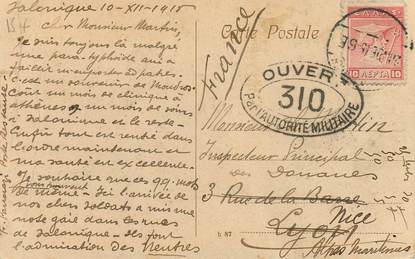 Salonique 10-XII-1915
Cher Monsieur Martin,
Je suis toujours là malgré
une para-typhoïde qui a
failli
C'est un souvenir de Moudros
un mois de clinique à
Athènes un mois de
à Salonique et le reste.
Enfin tout est rentré dans
l'ordre maintenant et
ma santé est excellente.
Je souhaite que ces qq. mots
de même. Ici l'arrivée de
nos chers soldats a mis une
note gaie dans les rues
de Salonique. Ils font
l'admiration des Neutres
Carte Postale
France
OUVERT
310
Par l'AUTORITÉ MILITAIRE
ΕΛΛΑΣ
10 ΛΕΠΤΑ 10
Monsieur Martin
Inspecteur Principal
des Douanes
3 Rue de la Basse
Lyon Nice
Alpes Maritimes
b 87